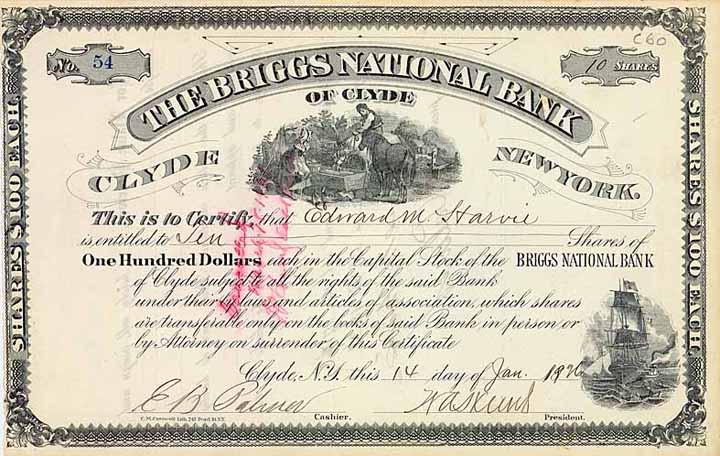 C60
No. 54
10 SHARES
THE BRIGGS NATIONAL BANK
OF CLYDE
CLYDE NEW YORK.
SHARES $100 EACH.
SHARES $100 EACH.
This is to Certify, that Edward M. Harvie
is entitled to Ten Shares of
One Hundred Dollars each in the Capital Stock of the BRIGGS NATIONAL BANK
of Clyde subject to all the rights of the said Bank
under their by laws and articles of association, which shares
are transferable only on the books of said Bank in person or
by Attorney on surrender of this Certificate
Clyde, N.Y. this 14 day of Jan. 192
E B Palmer
Cashier.
President.